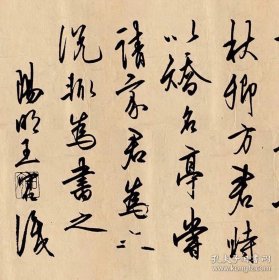 秋卿方君時
以矯名亭嘗
請家君為之
說輒為書之
陽明王守仁識